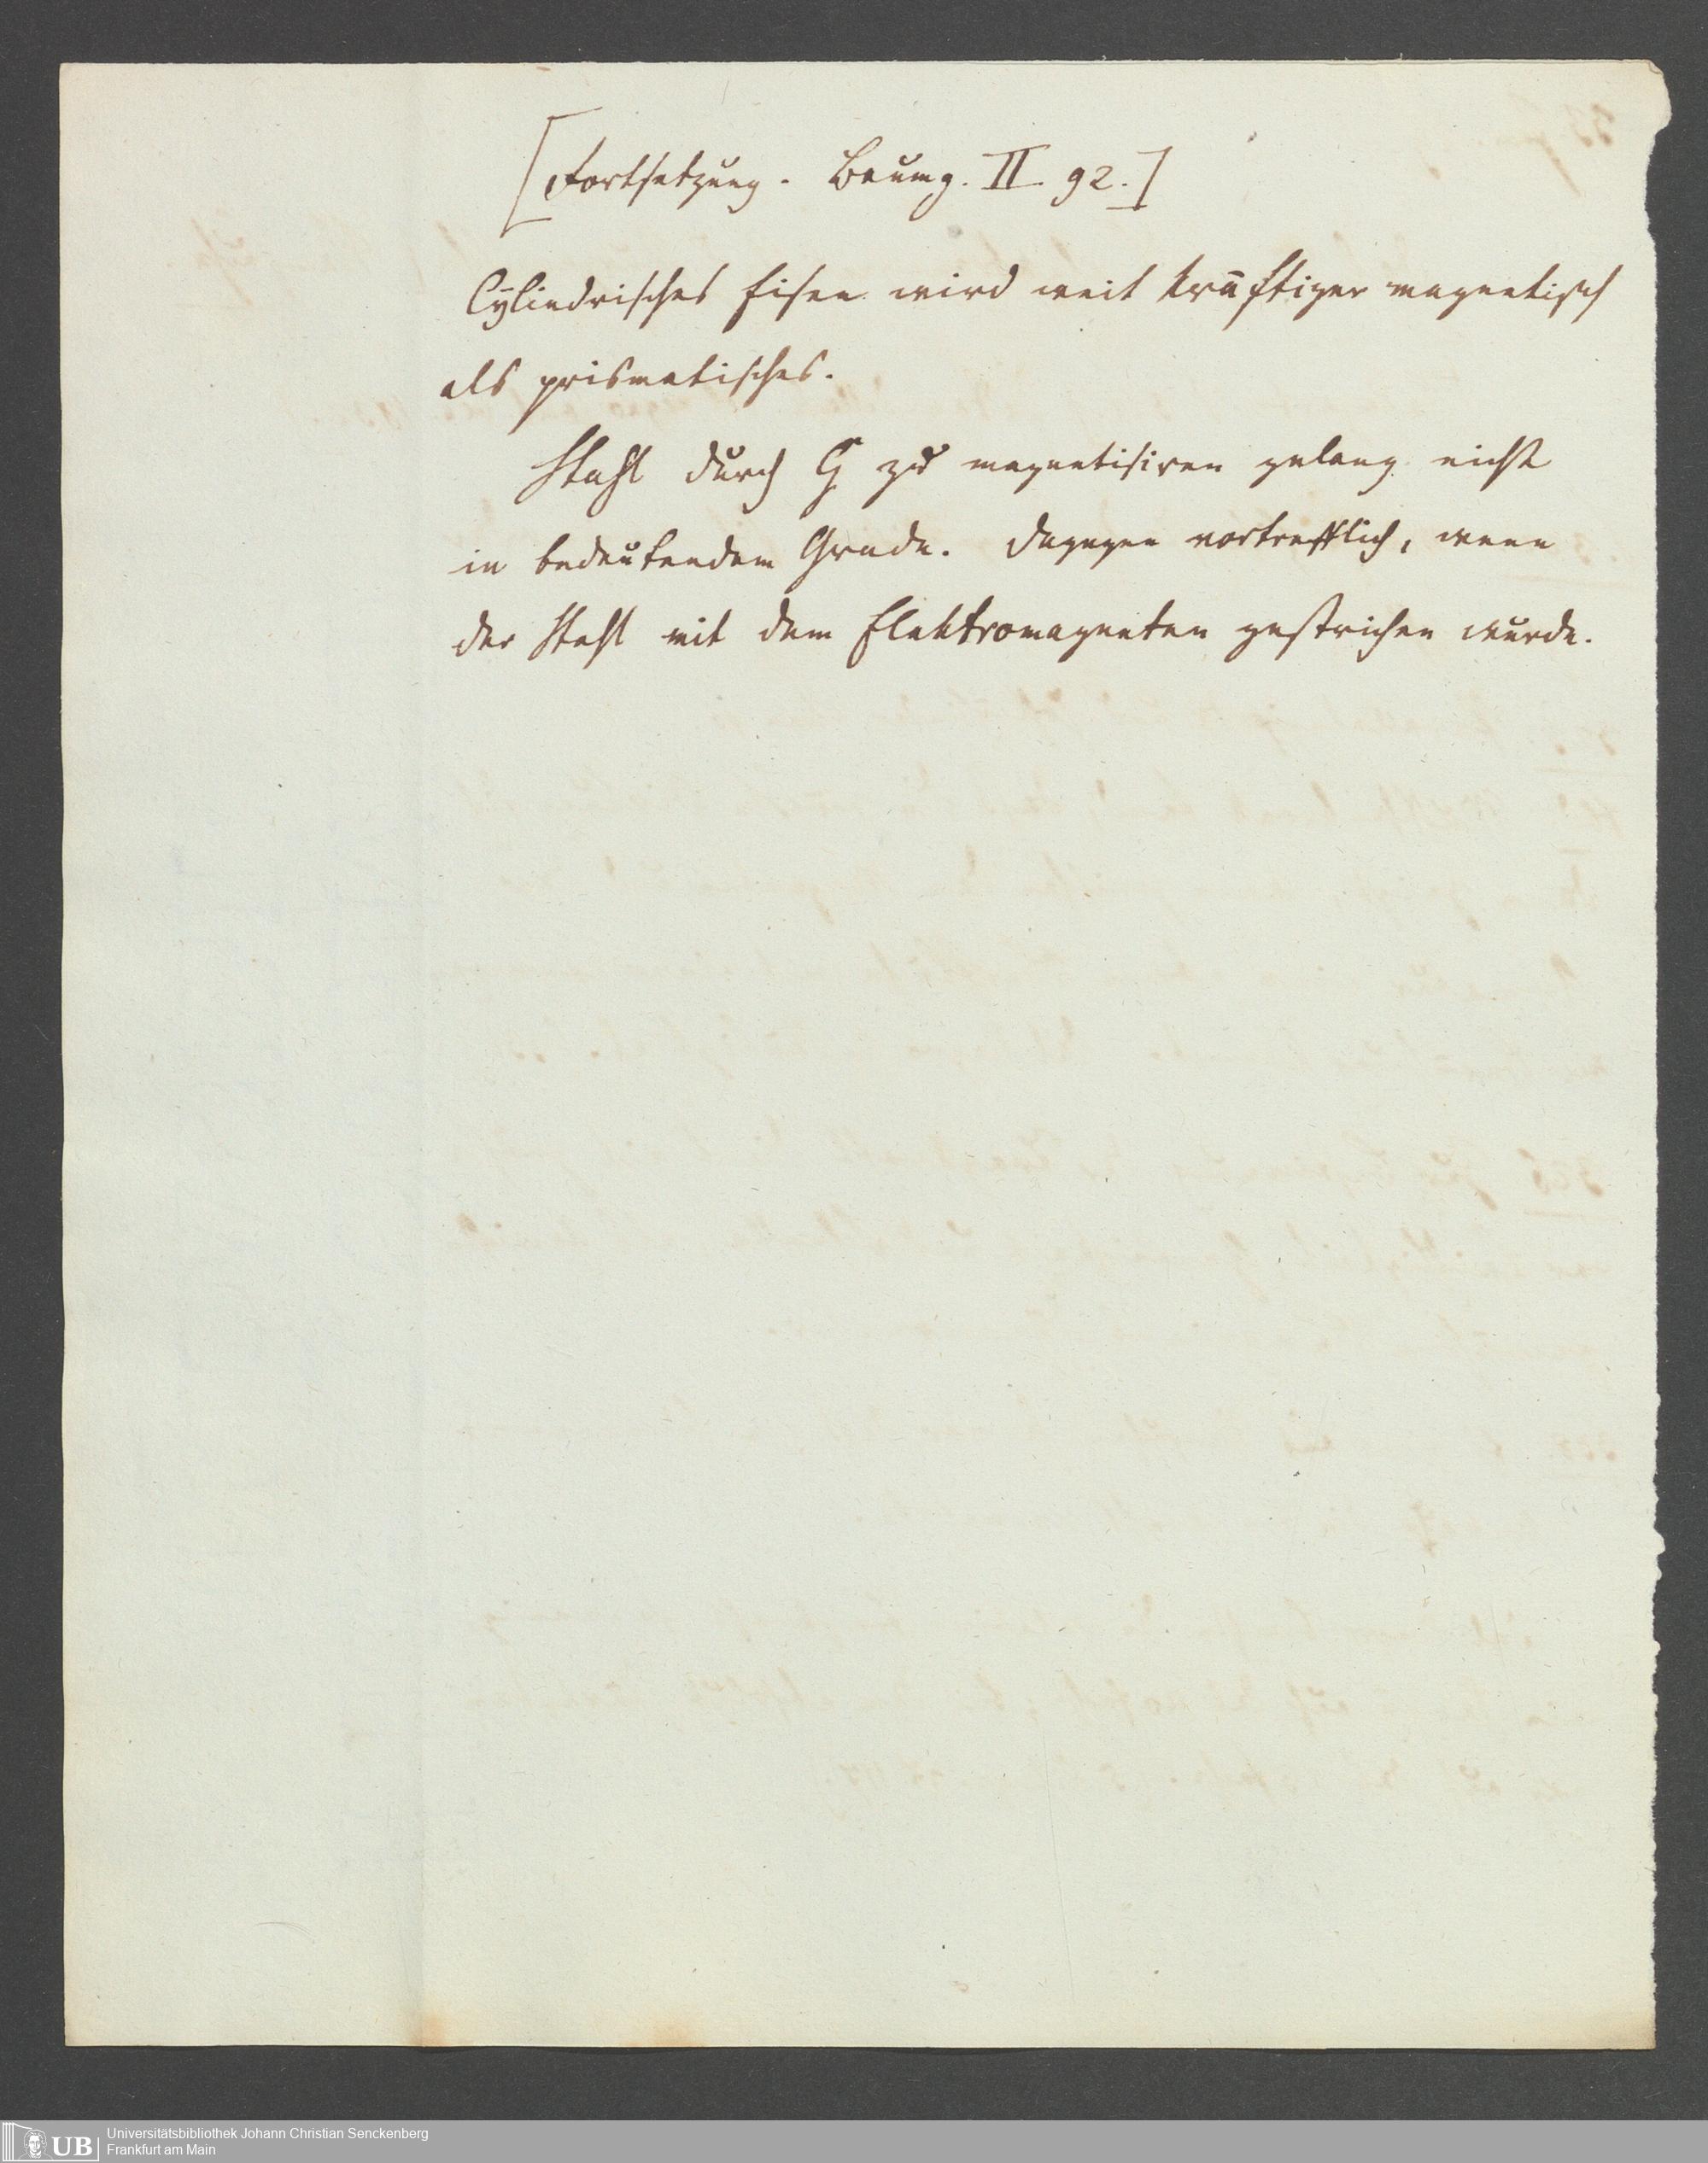 [Fortsetzung. Baumg. II 92.]
Cylindrisches Eisen wird weit kräftiger magnetisch
als prismatisches.
Stahl durch G zu magnetisiren gelang nicht
in bedeutendem Grade. Dagegen vortrefflich, wenn
der Stahl mit dem Elektromagneten gestrichen wurde.
UB
Universitätsbibliothek Johann Christian Senckenberg
Frankfurt am Main